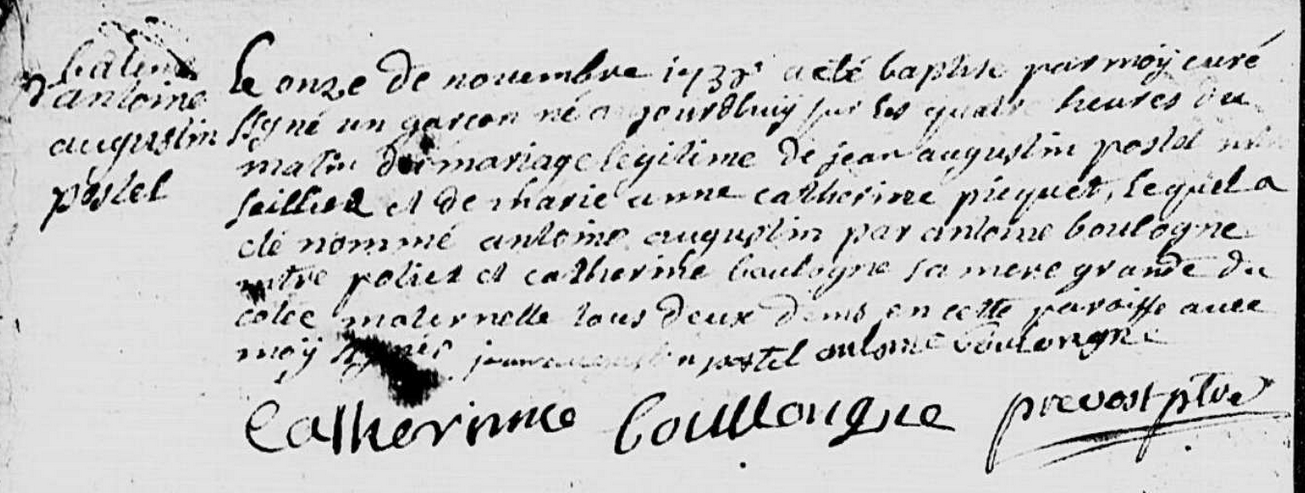 batme
d'antoine
augustin
postel
Le onze de novembre 1738 a eté baptise par moÿ curé
ssyné un garcon né aujourdhuiy sur les quatre heures du
matin du mariage legitime de jean augustin postel mtre
seillier et de marie anne catherine picquet, lequel a
eté nommé antoine augustin par antoine boulogne
mtre potier et catherine boulogne sa mere grande du
cotée maternelle tous deux dems en cette paroisse avec
moÿ signés jean augustin postel antoine boulongne
Catherinne boulllongne prevost ptre